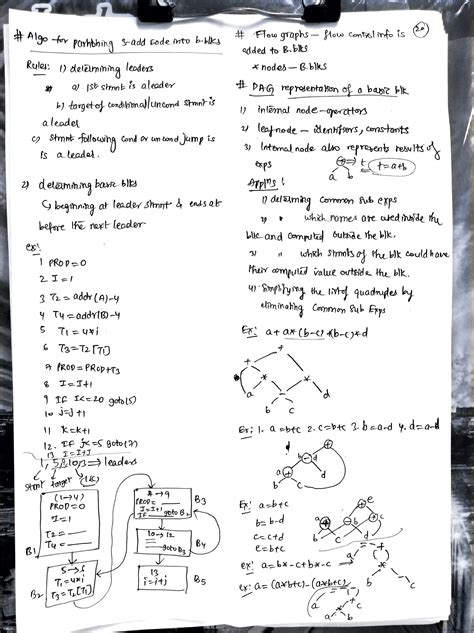 # Algo - for partitioning 3-add code into b.blks
Rules: 1) determining leaders
a) 1st stmnt is a leader
b) target of conditional/uncond stmnt is
a leader
c) stmnt following cond or uncond jump is
is a leader.
2) determining basic blks
↳ beginning at leader stmnt & ends at
before the next leader
ex:
1 PROD = 0
2 I = 1
3 T2 = addr(A)-4
4 T4 = addr(B)-4
5 T1 = 4*i
6 T3 = T2[T1]
7 PROD = PROD+T3
8 I = I+1
9 If I<=20 goto(5)
10 j=j+1
11 K=K+1
12. If j<=5 goto(7)
13 I=I+J
→ leaders
stmt target
(1→4)
PROD=0
I=1
T2=
T4=
B1
5→6
T1=4*i
T3=T2[T1]
B2
7→9
PROD=
I=I+1
If goto B2
B3
10→12
goto B3
B4
13
i=i+j
B5
20
# Flow graphs — flow control info is
added to B.blks
* nodes — B.blks
# DAG representation of a basic blk
1) internal node - operators
2) leaf node — identifiers, constants
3) Internal node also represents results of
exps
+ → t
a b
t=a+b
Applns:
1) determing common sub exps
2) " which names are used inside the
blk and computed outside the blk.
3) " which stmnts of the blk could have
their computed value outside the blk.
4) Simplifying the list of quadruples by
eliminating common sub exps
Ex: a + a*(b-c)+(b-c)*d
+
+ *
* d
a -
b c
Ex: 1. a=b+c 2. c=b+c 3. b=a-d 4. d=a-d
b d
a
b c
Ex: a=b+c
b=b-d
c=c+d
e=b+c
e
a b c
b c d
ex: a=b*-c+b*-c
ex: a=(a*b+c)-(a*b+c)